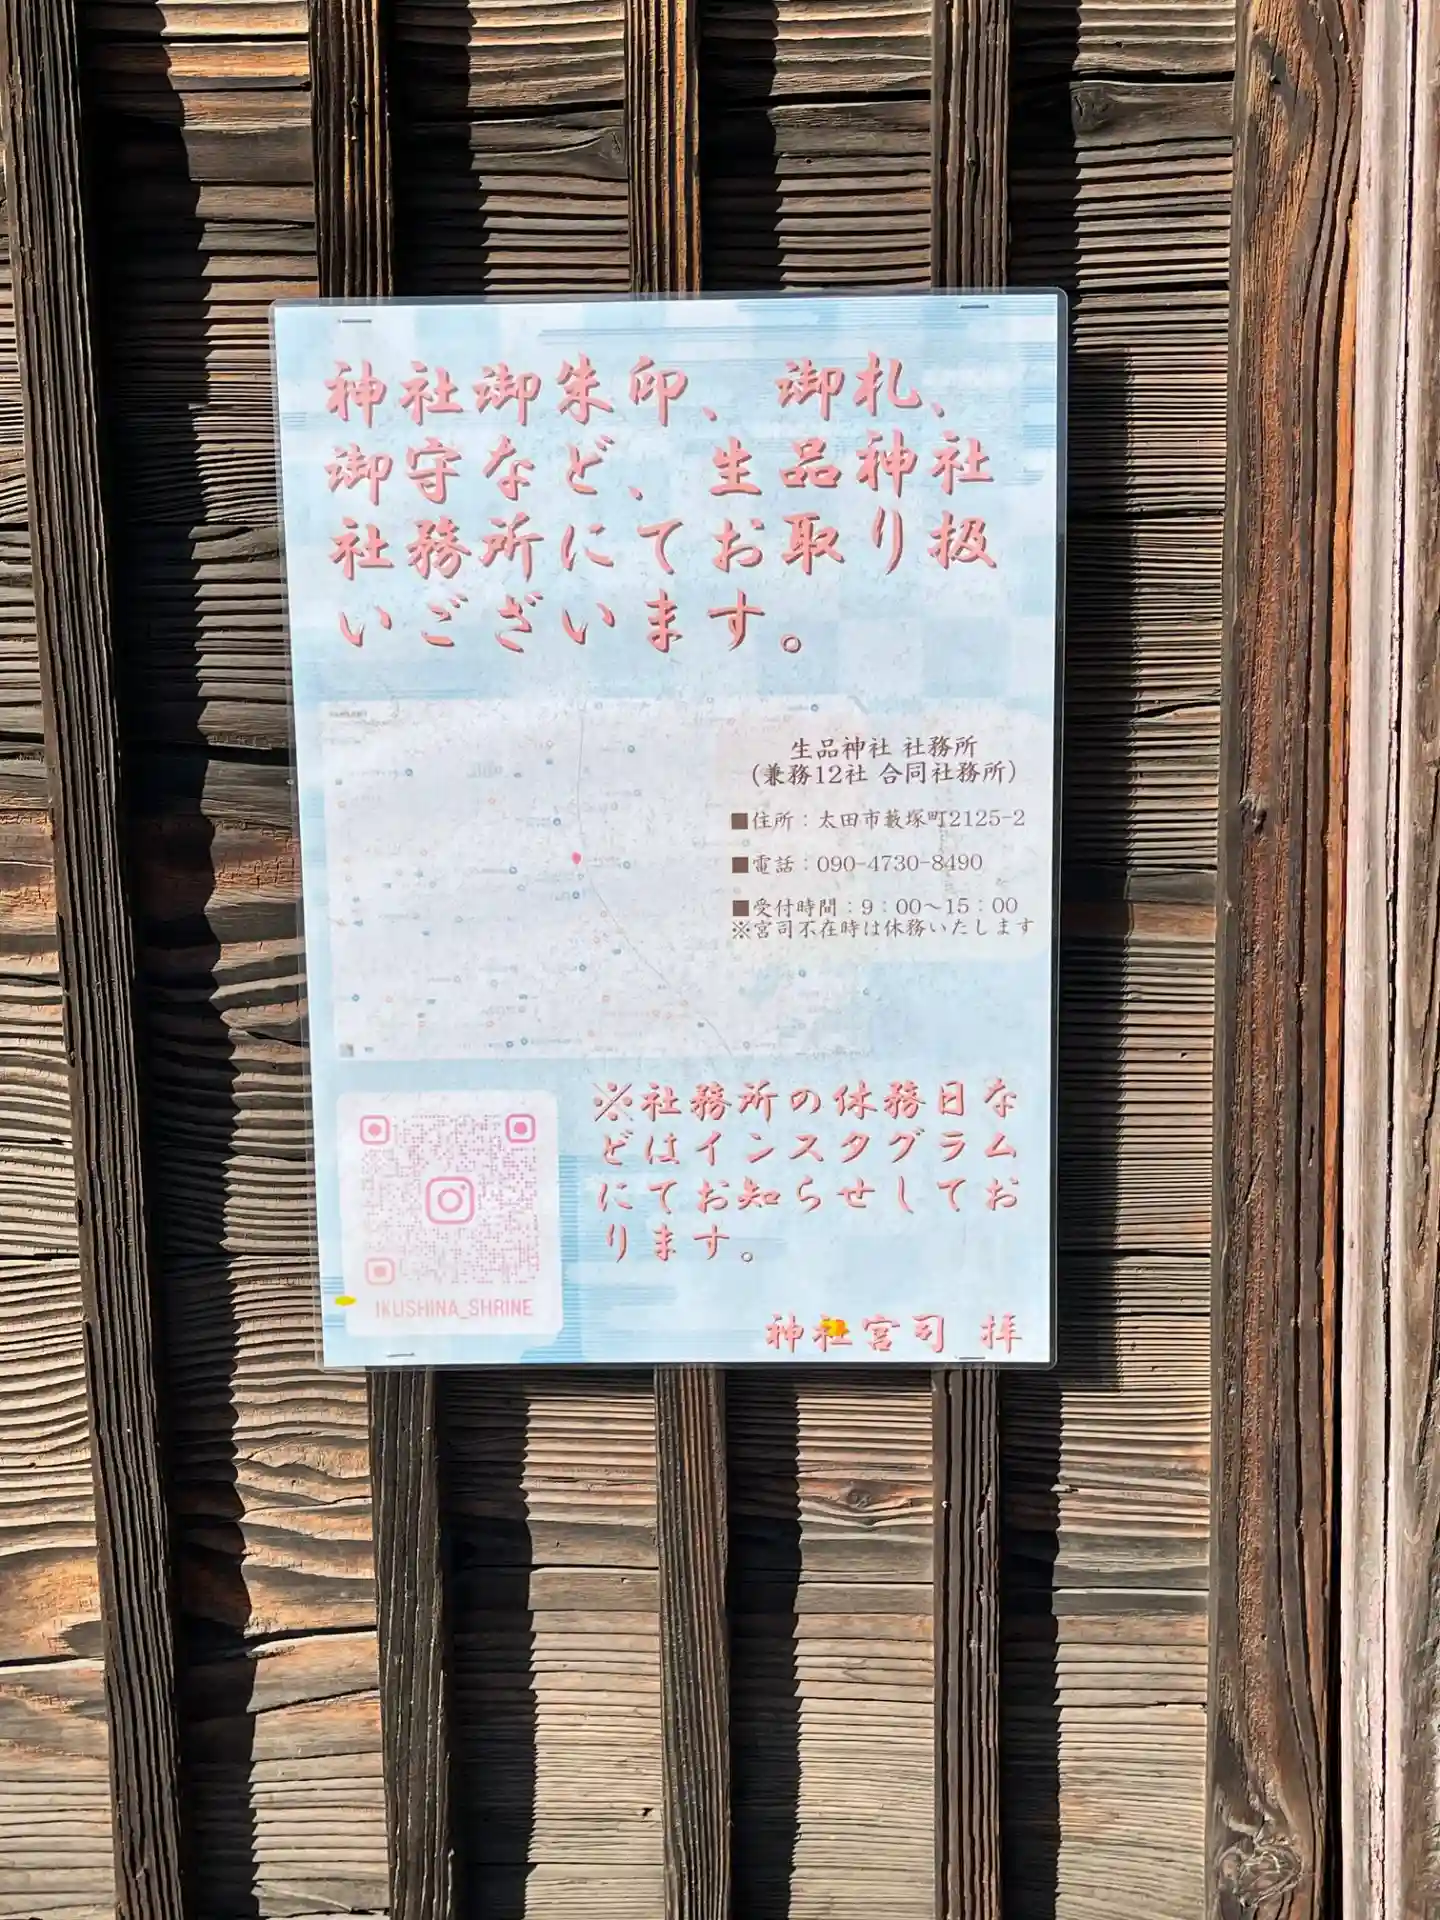 神社御朱印、御札、
御守など、生品神社
社務所にてお取り扱
いございます。
生品神社 社務所
(兼務12社 合同社務所)
■住所：太田市藪塚町2125-2
■電話：090-4730-8490
■受付時間：9：00～15：00
※宮司不在時は休務いたします
※社務所の休務日な
どはインスタグラム
にてお知らせしてお
ります。
IKUSHINA_SHRINE
神社宮司 拝